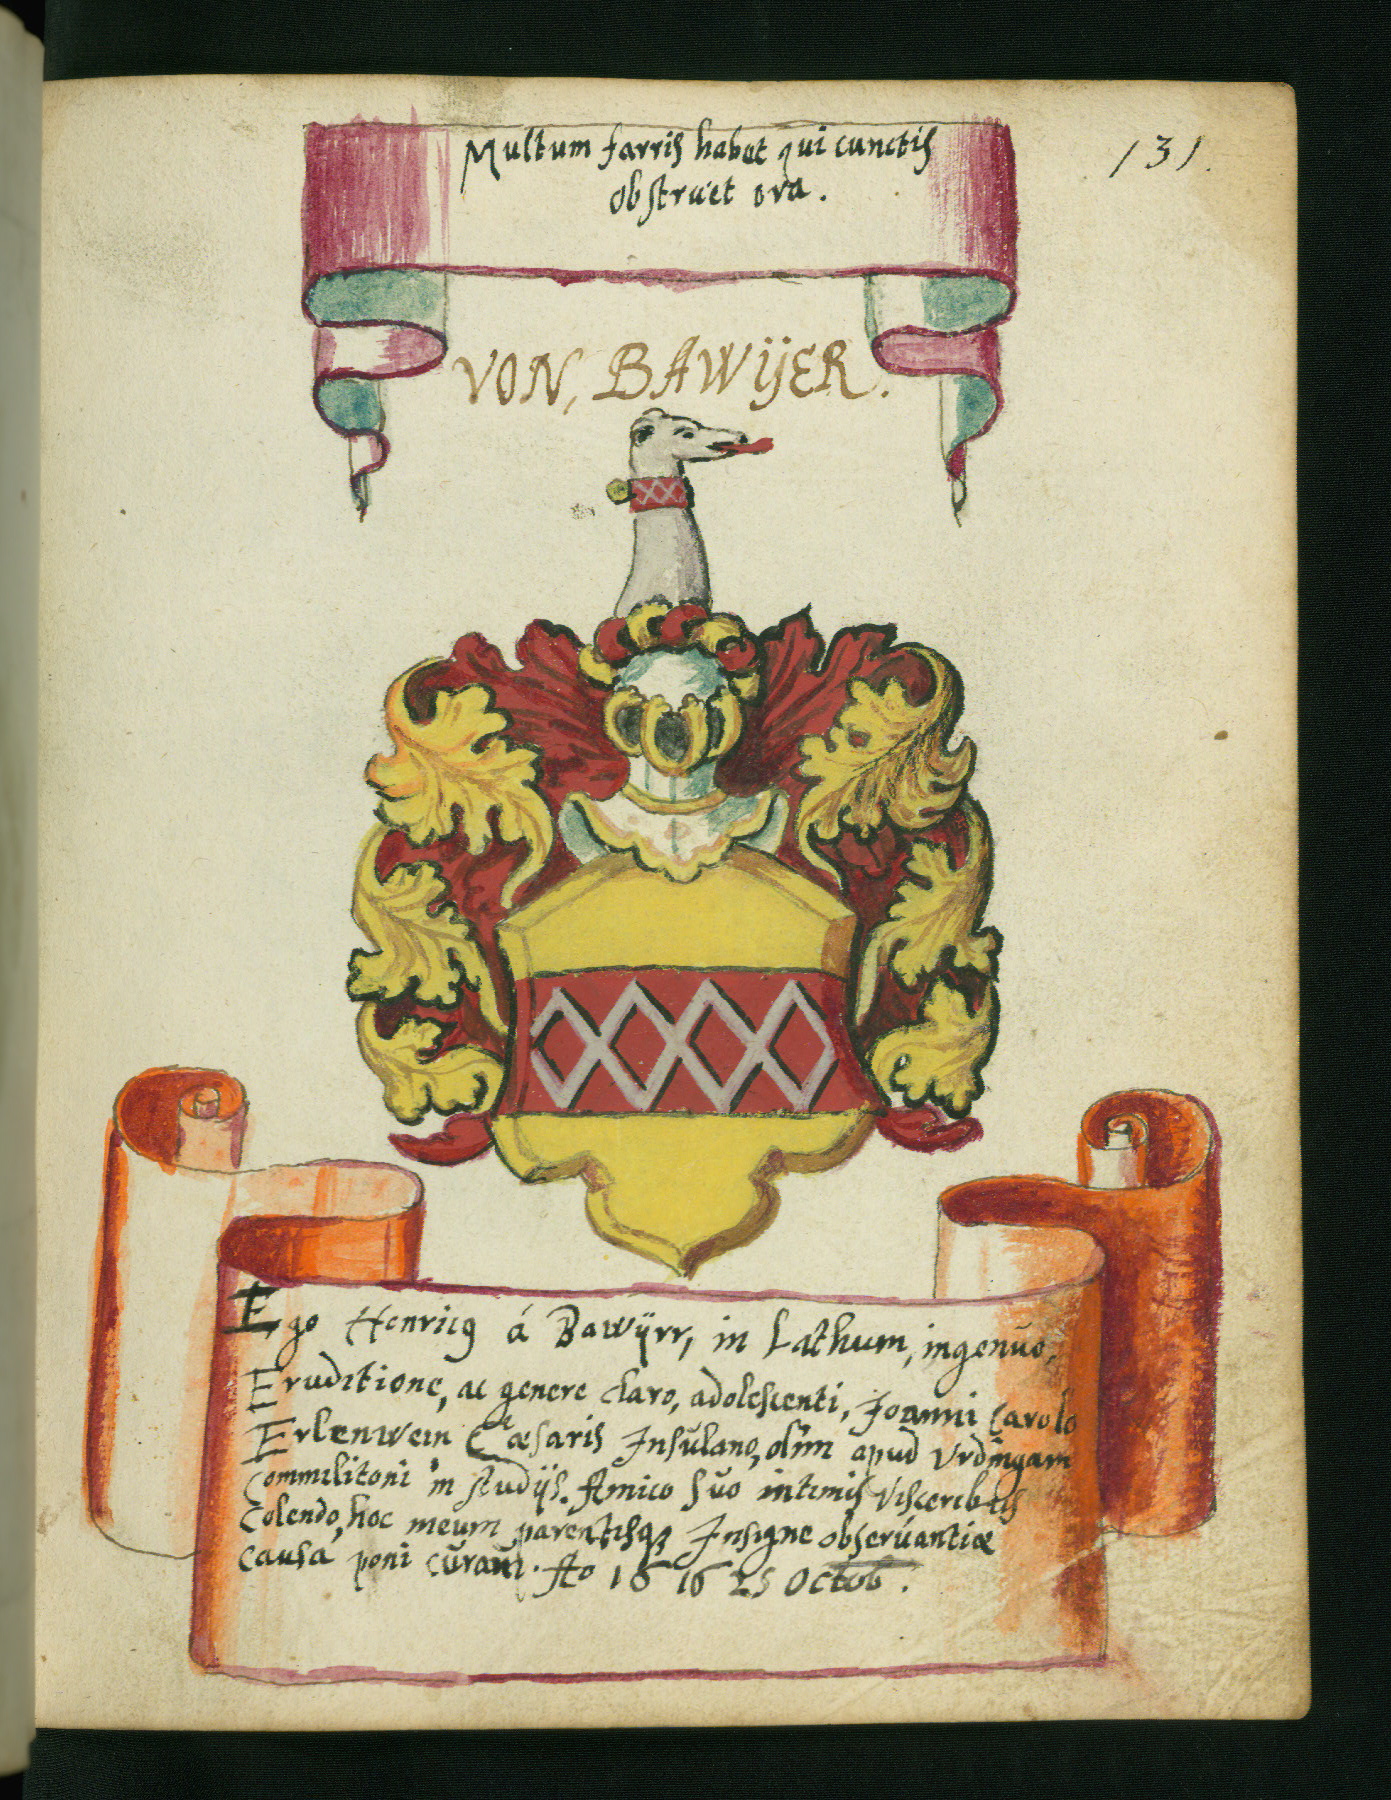 131.
Multum farris habet qui cunctis
obstruet ora.
VON, BAWŸER.
Ego Henricq á Bawÿrr, in Lathum, ingenuo,
Eruditione, ac genere claro, adolescenti, Joanni Carolo
Erlenwein Cæsaris Insulano, olim apud Vrdingam
Commilitoni in studijs. Amico suo intimis Visceribus
Colendo, hoc meum parentisq; Insigne obseruantiæ
causa poni curaui. Ao 1616 25 Octob.